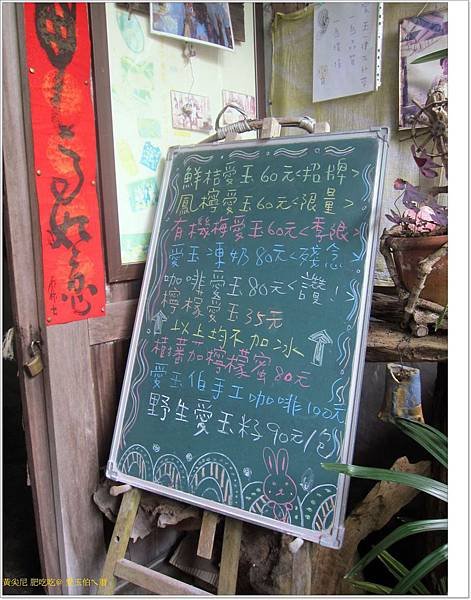 鮮桔愛玉60元<招牌>
鳳檸愛玉60元<限量>
有機梅愛玉60元<季限>
愛玉凍奶80元<殘念>
咖啡愛玉80元<讚!>
檸檬愛玉35元
↑以上均不加冰↑
樹蕃茄檸檬蜜80元
愛玉伯手工咖啡100元
野生愛玉籽90元/包
事事如意
黃尖尼 肥吃吃@ 愛玉伯ㄟ厝